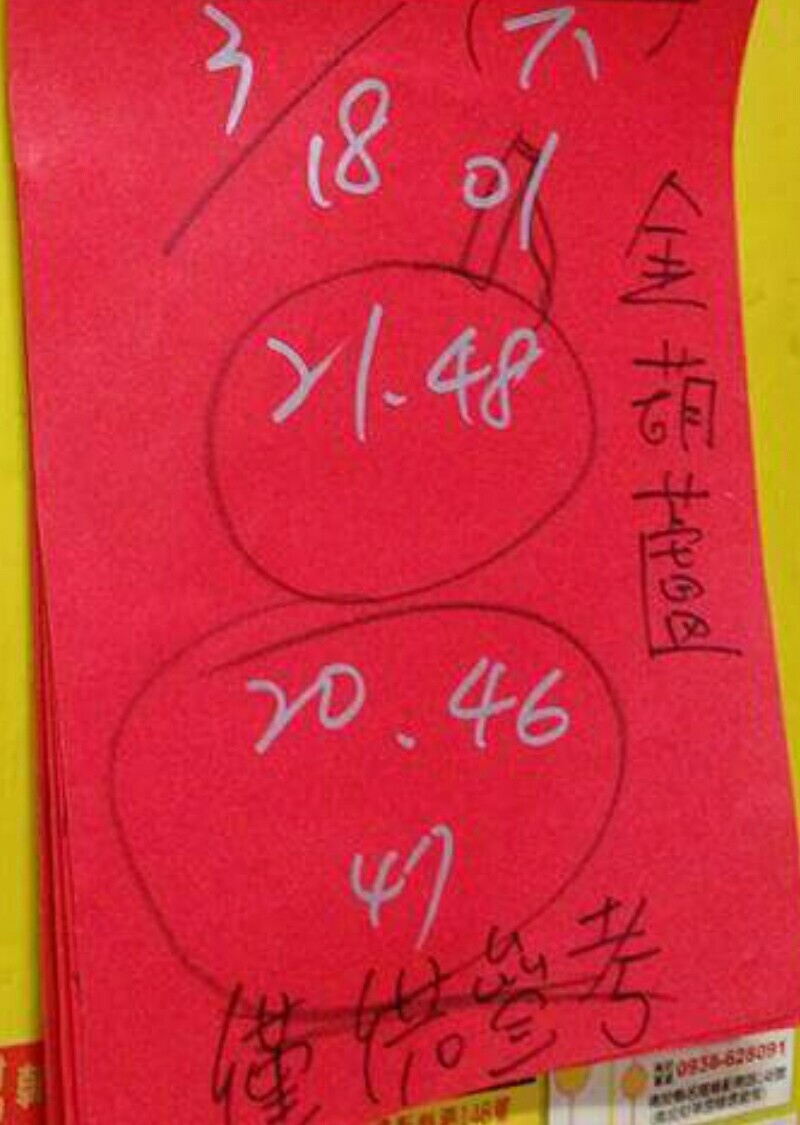 3/18 (六)
01
21.48
20.46
47
金葫蘆
僅供參考
0938-628091